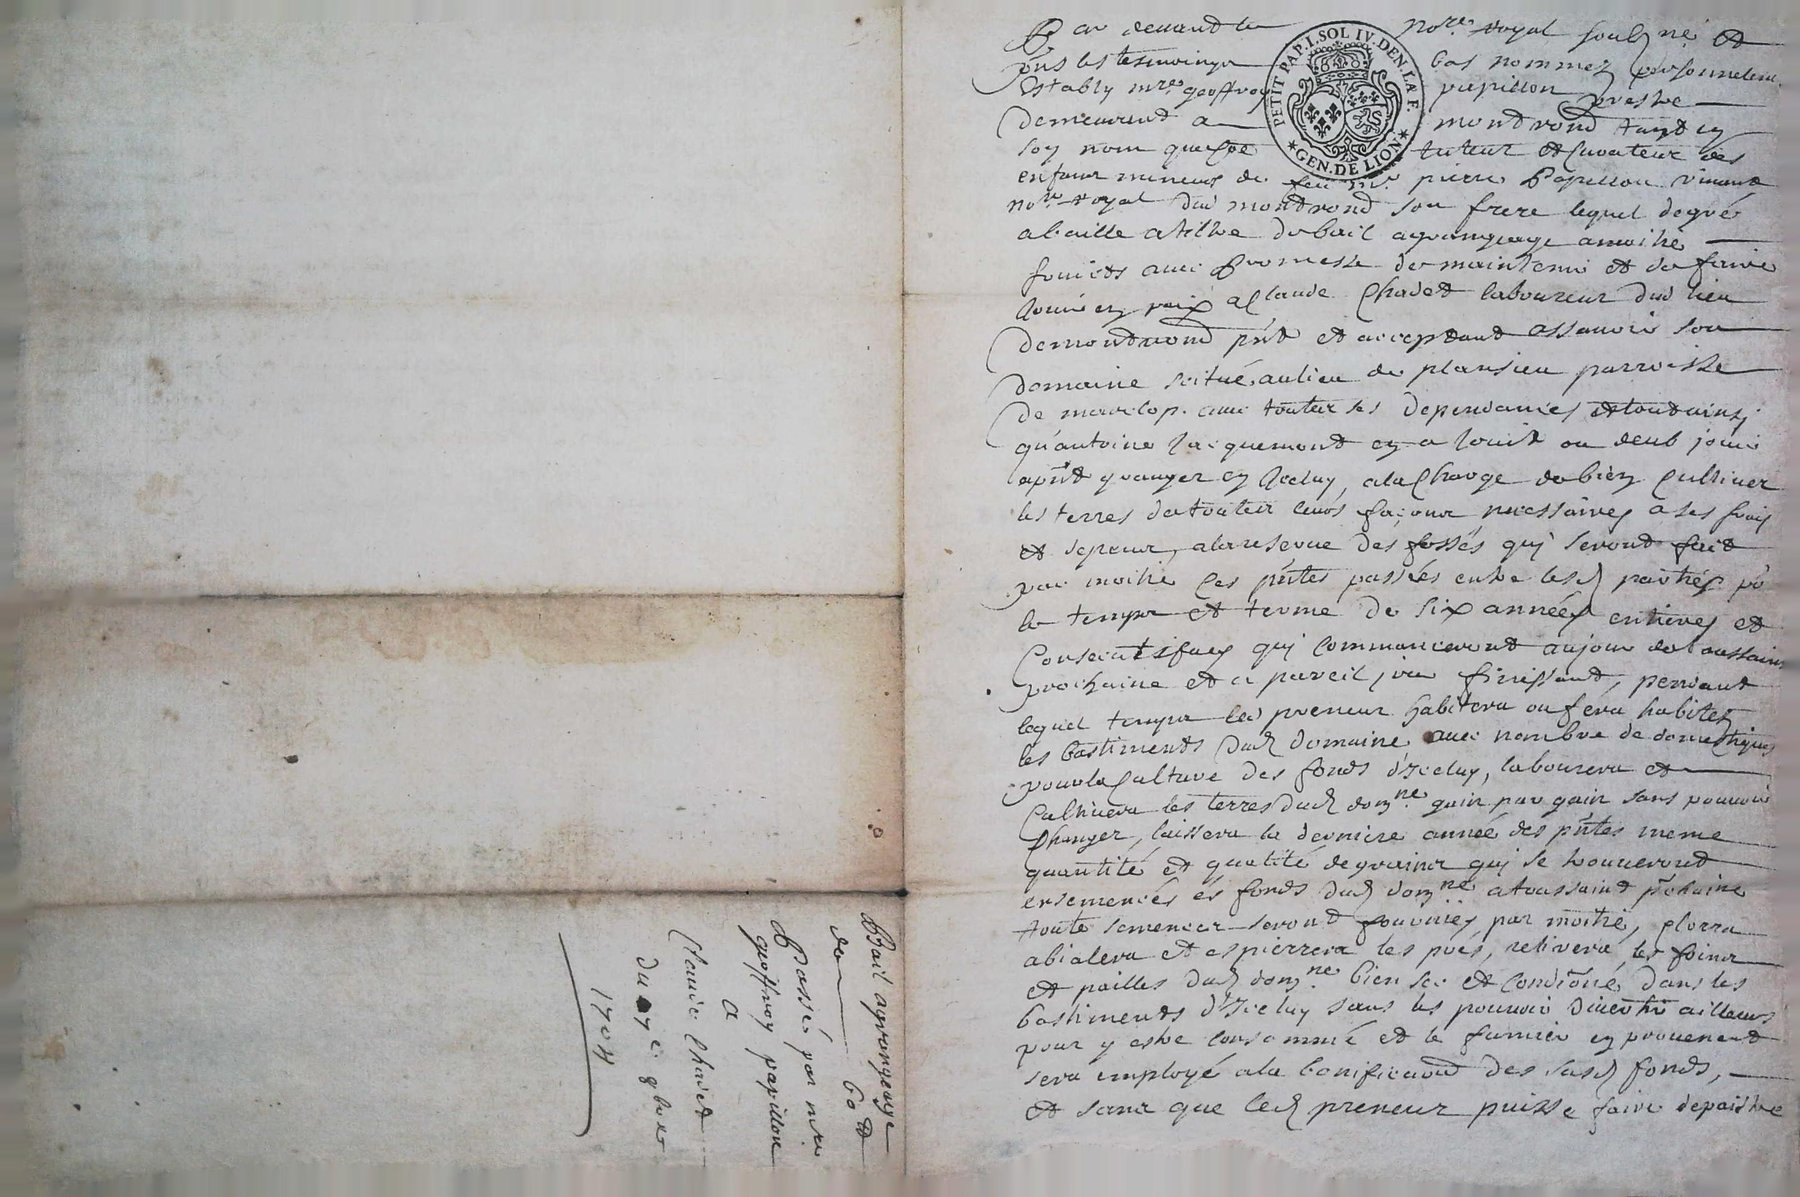 Par devand le no.re royal soubz.né et
pñs les tesmoingz bas nommez personnelem.
estably m.re geoffroy papillon prestre
demeurant a montrond tant en
son nom que pe tuteur et curateur des
enfans mineurs de feu m.e pierre Papillon vivant
no.re royal dud montrond son frere lequel de gré
a baillé a tiltre de bail a grangeage a moitié
fruicts avec promesse de maintenir et de faire
jouir en paix a Claude Chavet laboureur dud lieu
de montrond pñt et acceptant assavoir son
domaine scitué au lieu de plansieu parroisse
de marclop. avec toutes ses dependances et tout ainsy
qu'antoine Jacquemont en a jouit ou deub jouir
a pñt granger en Iceluy, a la Charge de bien Cultiver
les terres de toutes leurs façons necessaires a ses frais
et depens, a la reserve des fossés qui seront fait
par moitié Ces pñtes passées entre lesd parties po.r
le temps et terme de six années entieres et
Consecutifves qui Commanceront au jour de toussaint
prochaine et a pareil jour finissant, pendant
lequel temps led preneur habitera ou fera habiter
les bastiments dud domaine avec nombre de domestiques
pour la Culture des fonds d'Iceluy, labourera et
Cultivera les terres dud dom.ne gain par gain sans pouvoir
changer, laissera la derniere année des pñtes meme
quantité et qualité de grains qui se trouveront
ensemencés és fonds dud dom.ne a toussaint prchaine
toute semences seront fournies par moitié, clorra
abialera et espierrera les prés, retirera les foins
et pailles dud dom.ne bien sec et Conditioñé dans les
bastiments d'Iceluy sans les pouvoir divertir ailleurs
pour y estre Consommé et le fumier en provenent
sera employé a la bonification des susd fonds,
et sans que led preneur puisse faire depaistre
PETIT PAP. I. SOL IV. DEN. LA F.
GEN. DE LION
Bail a grangeage
de 60 tt
Passé par m.re
geoffroy papillon
A
Claude Chavet
du 7e 9bre
1704